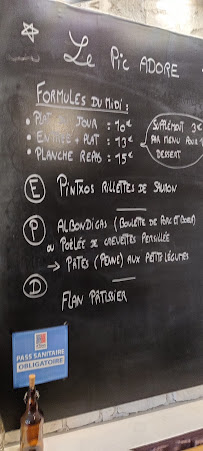 Le Pic ADORE
FORMULES DU MIDI :
• PLAT DU JOUR : 10€
• ENTRÉE + PLAT : 13€
• PLANCHE REPAS : 15€
SUPPLÉMENT 3€
PAR MENU POUR
DESSERT
E PINTXOS RILLETTES DE SAUMON
P ALBONDIGAS (BOULETTE DE PORC ET BOEUF)
ou POÊLÉE DE CREVETTES PERSILLÉE
→ PÂTES (PENNE) AUX PETITS LÉGUMES
D FLAN PÂTISSIER
PASS SANITAIRE
OBLIGATOIRE